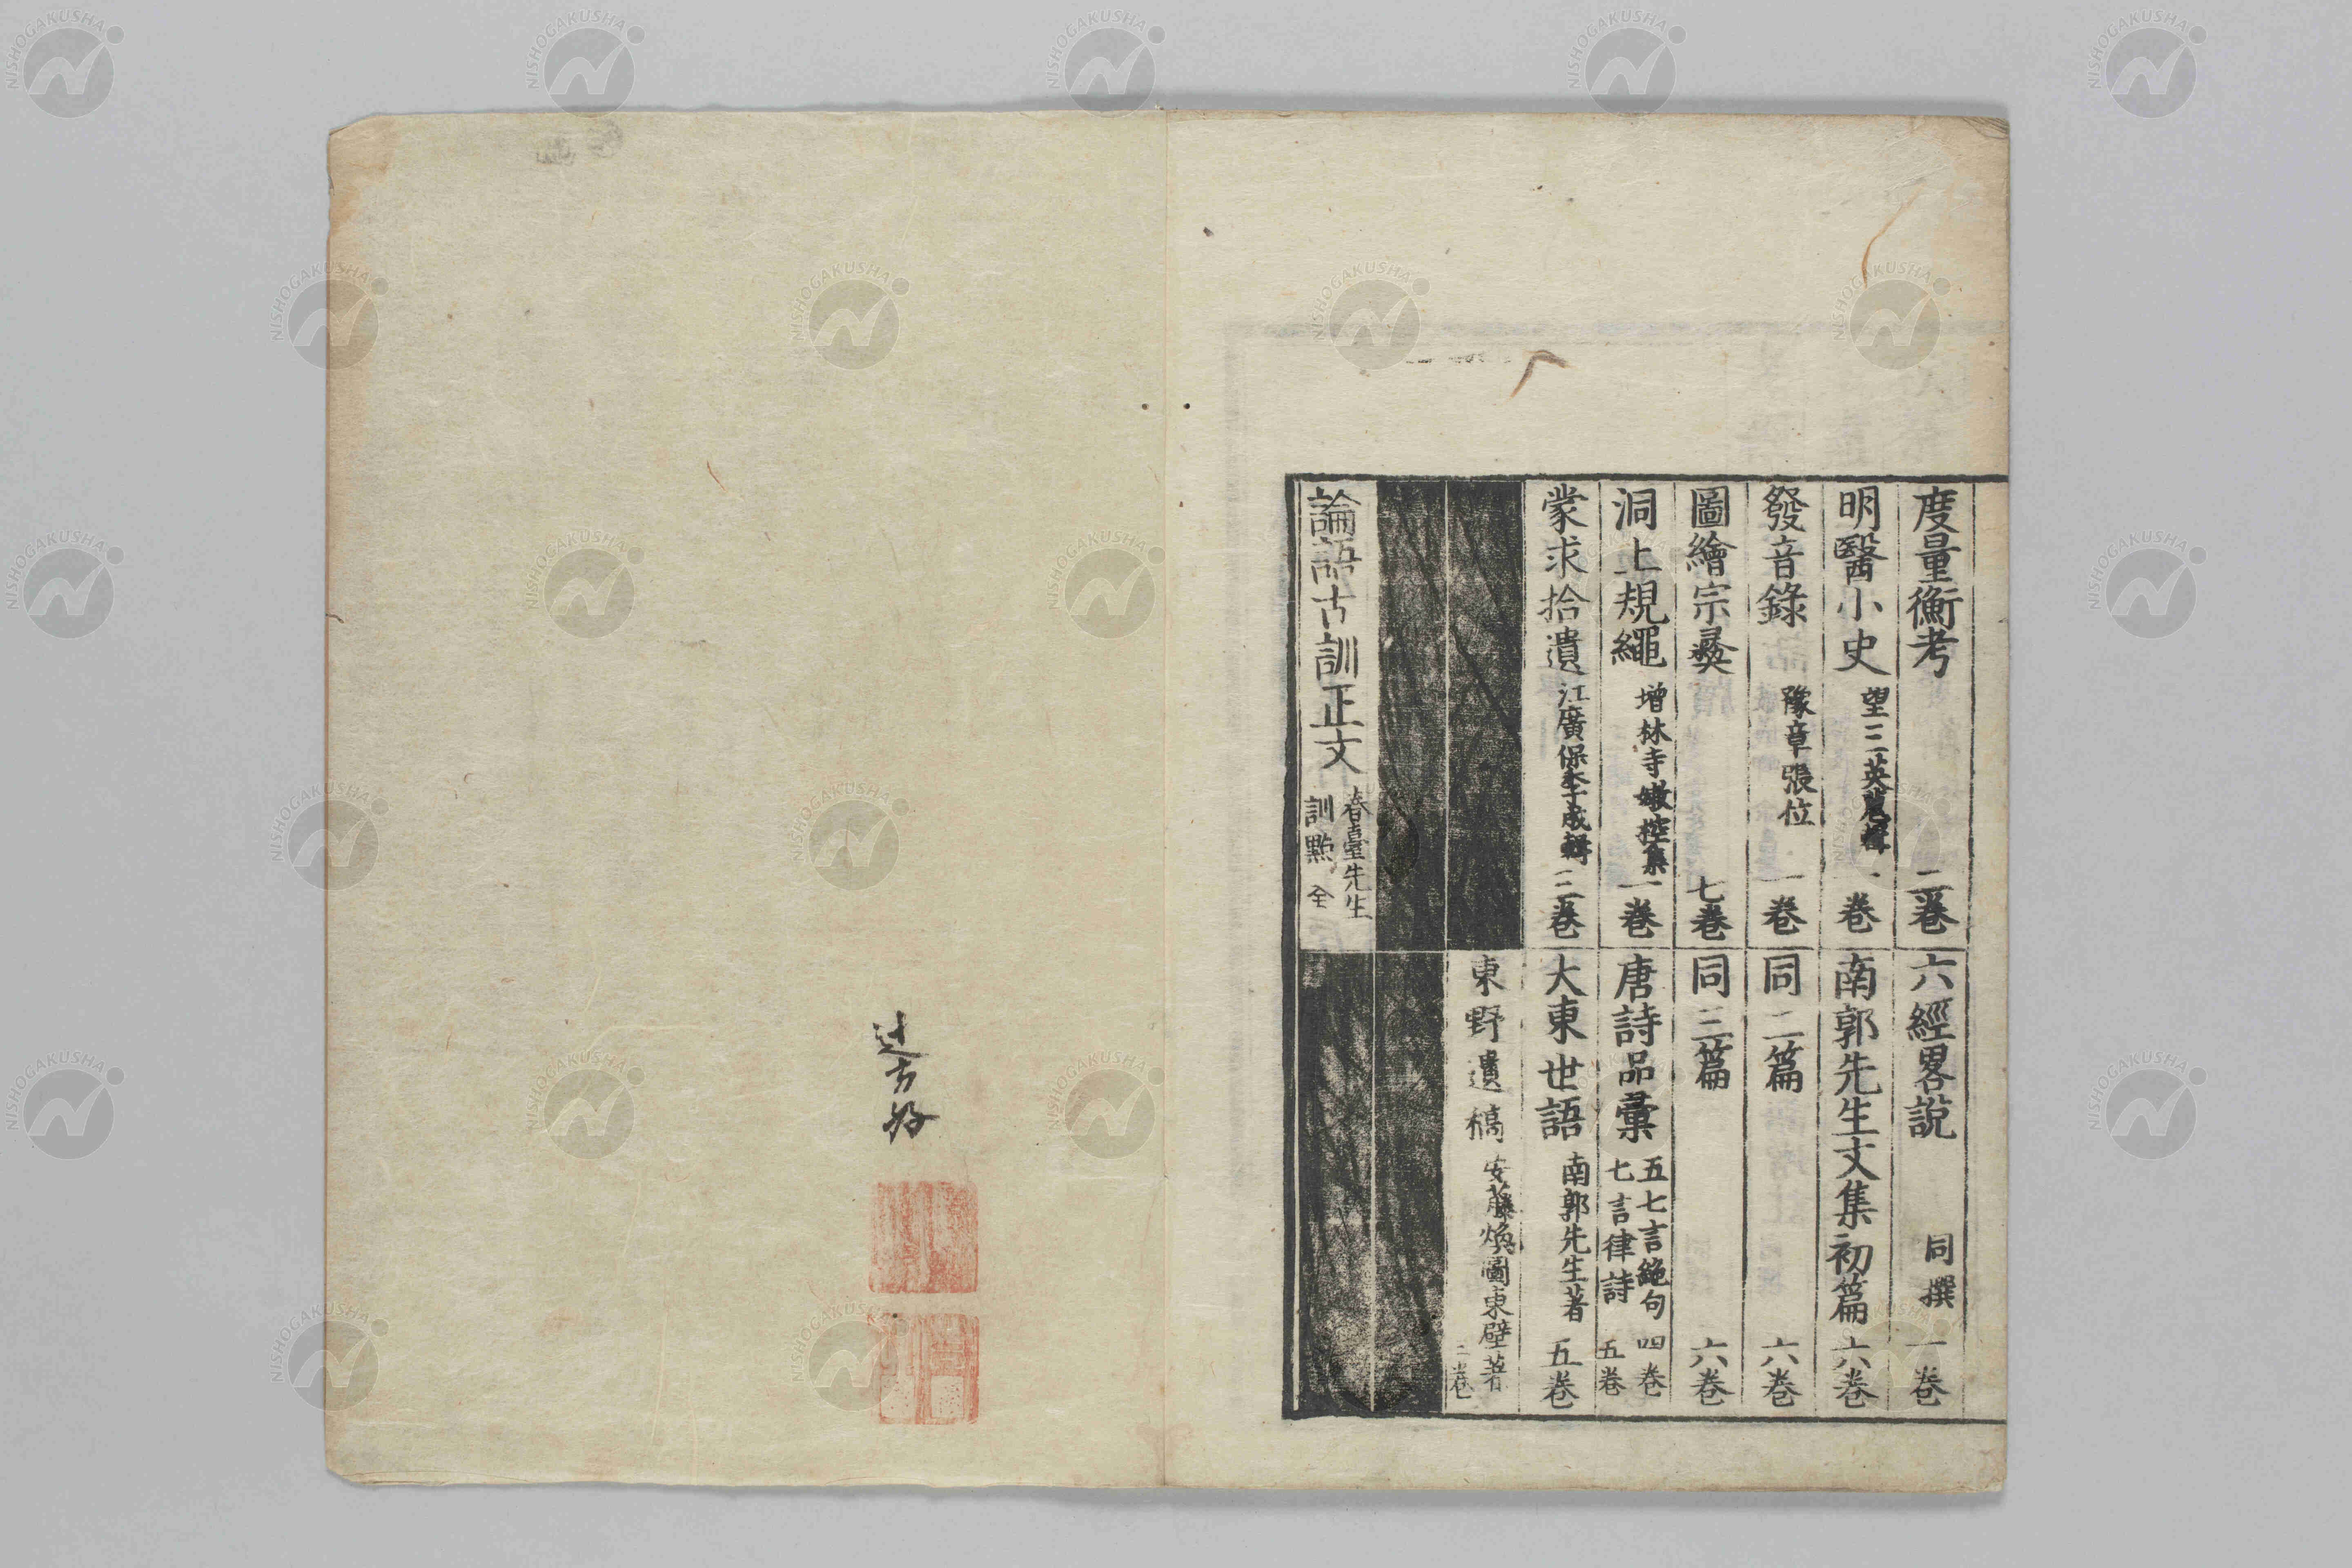 度量衡考 二卷
明醫小史 望三英 輯 一卷
發音錄 豫章張位 一卷
圖繪宗彝 七卷
洞上規繩 增林寺 集 一卷
蒙求拾遺 江廣保 成輯 三卷
論語古訓正文 春臺先生訓點 全
六經畧說 同撰 一卷
南郭先生文集初篇 六卷
同二篇 六卷
同三篇 六卷
唐詩品彙 五七言絕句 四卷
七言律詩 五卷
大東世語 南郭先生著 五卷
東野遺稿 安藤煥圖東壁著 三卷
NISHOGAKUSHA